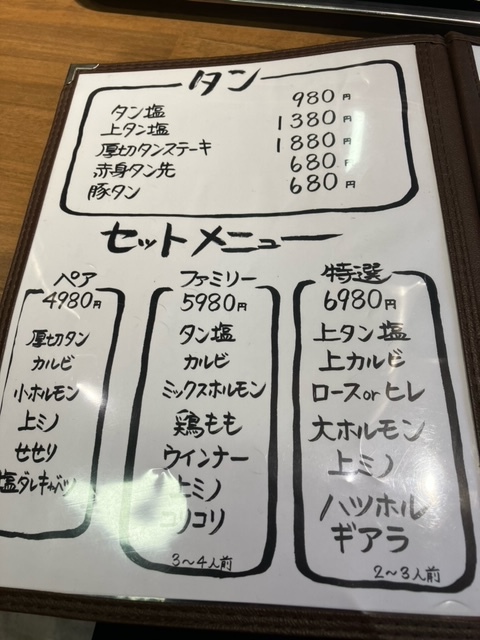 タン
タン塩 980円
上タン塩 1380円
厚切タンステーキ 1880円
赤身タン先 680円
豚タン 680円
セットメニュー
ペア
4980円
厚切タン
カルビ
小ホルモン
上ミノ
せせり
塩ダレキャベツ
ファミリー
5980円
タン塩
カルビ
ミックスホルモン
鶏もも
ウインナー
上ミノ
コリコリ
3〜4人前
特選
6980円
上タン塩
上カルビ
ロースorヒレ
大ホルモン
上ミノ
ハツホル
ギアラ
2〜3人前